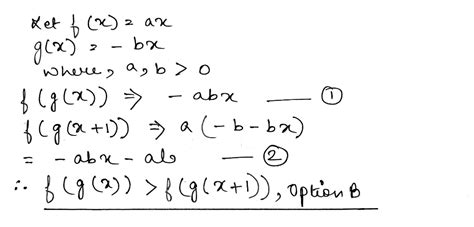 Let f(x) = ax
g(x) = - bx
where, a, b > 0
f(g(x)) ⇒ - abx —— ①
f(g(x+1)) ⇒ a(-b-bx)
= - abx - ab —— ②
∴ f(g(x)) > f(g(x+1)), option B